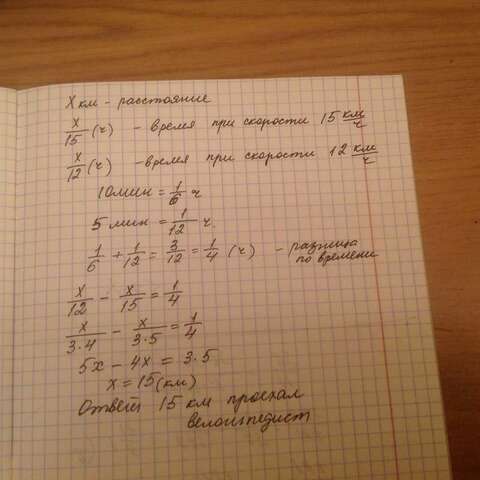 X км - расстояние
x/15 (ч) - время при скорости 15 км/ч
x/12 (ч) - время при скорости 12 км/ч
10 мин = 1/6 ч
5 мин = 1/12 ч.
1/6 + 1/12 = 3/12 = 1/4 (ч) - разница по времени
x/12 - x/15 = 1/4
x/3·4 - x/3·5 = 1/4
5x - 4x = 3·5
x = 15 (км)
Ответ 15 км проехал
велосипедист